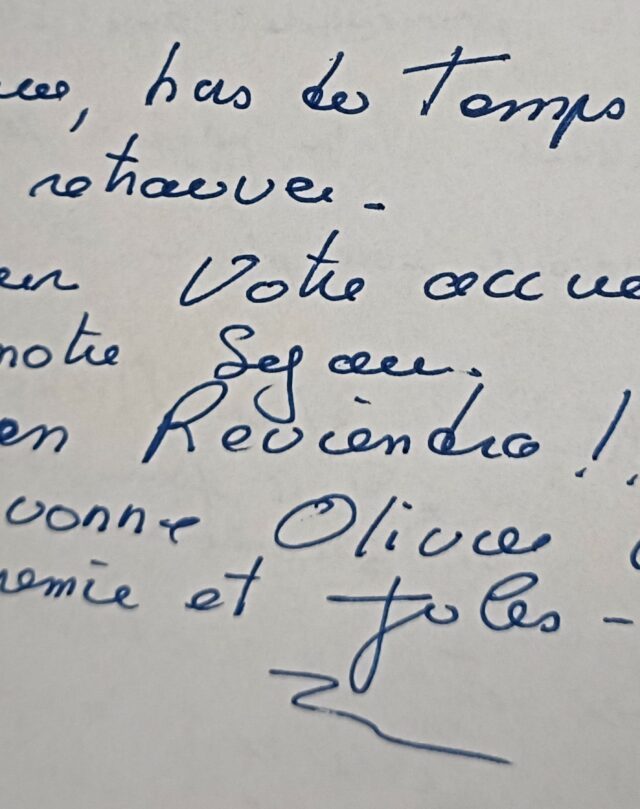 pas de Temps
retrouver -
Votre accue
notre Sejour.
en Reviendra !!
vonne Olivier
remie et Jules -